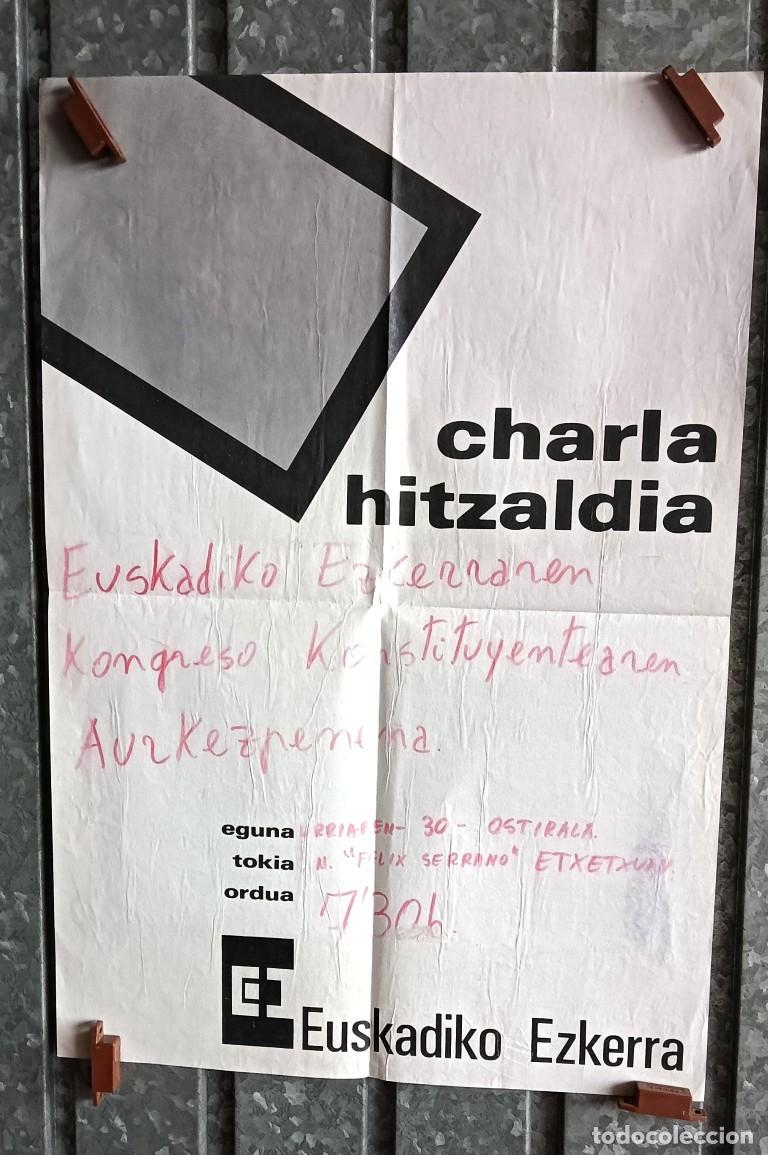 charla
hitzaldia
Euskadiko Ezkerraren
Kongreso Konstituyentearen
Aurkezpenena.
eguna URRIAREN - 30 - OSTIRALA.
tokia N. "FELIX SERRANO" ETXETXUAN
ordua 7'30h.
Euskadiko Ezkerra
todocoleccion